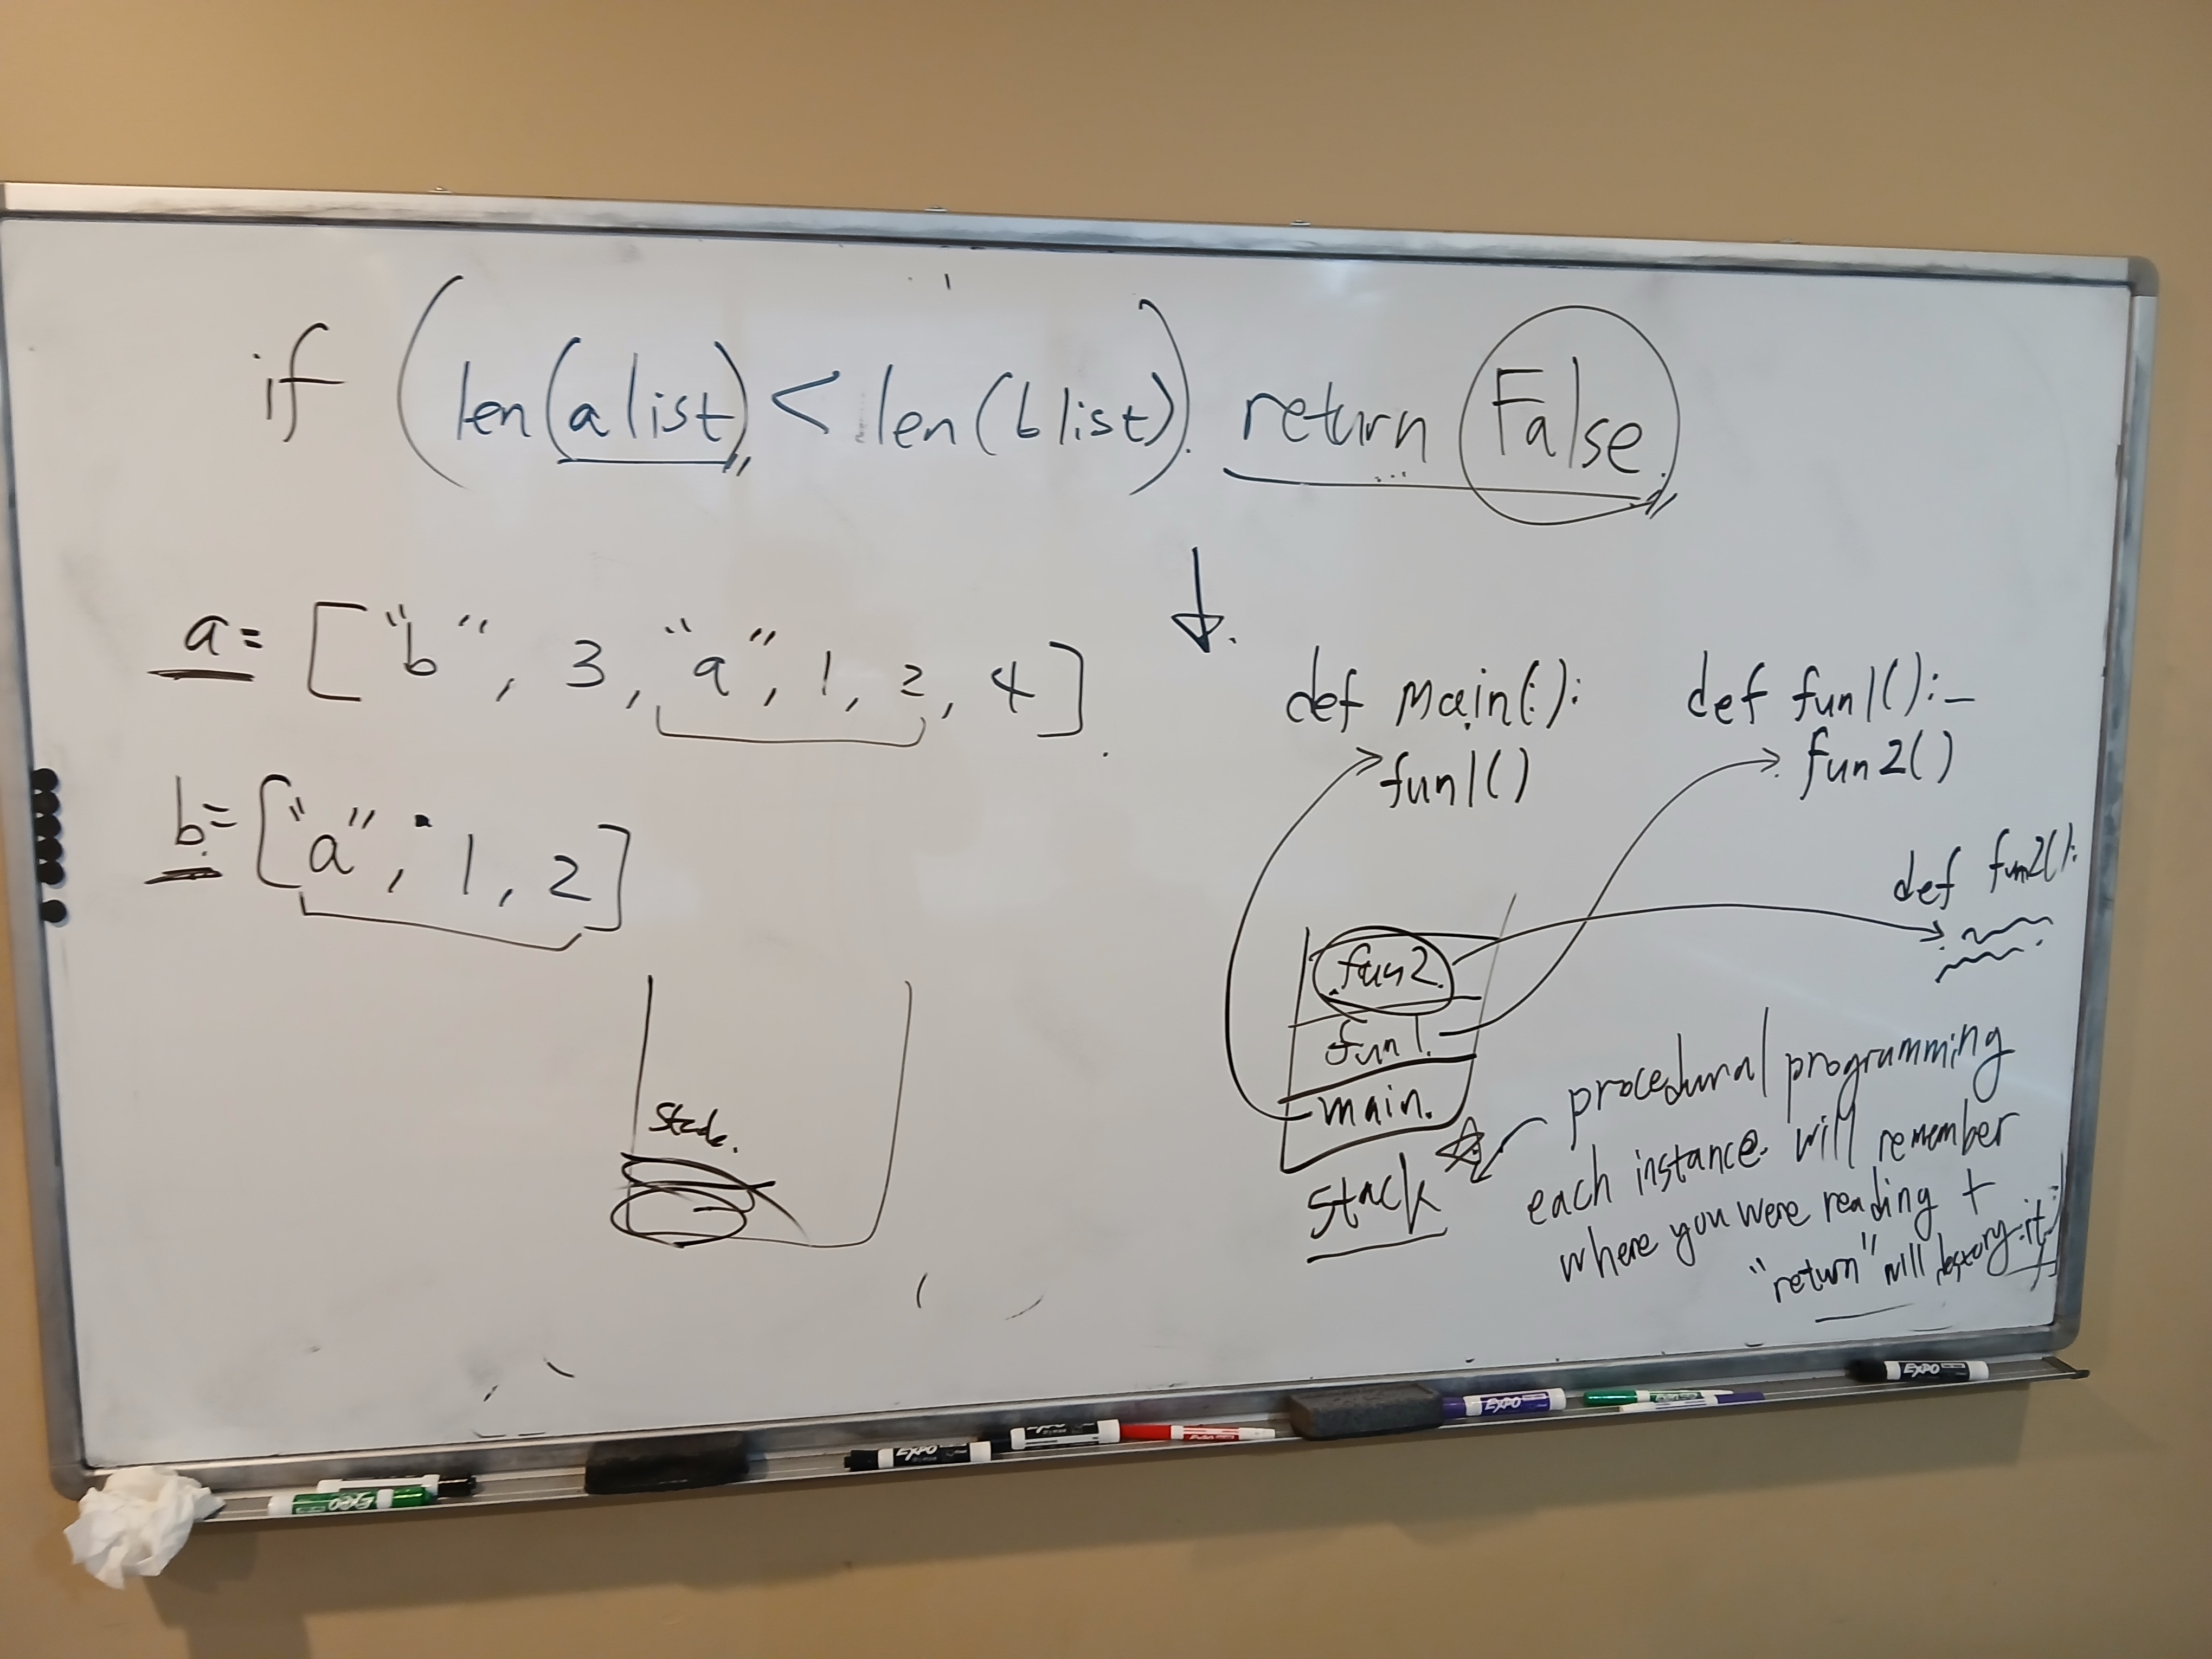 if (len(alist) < len(blist)). return False.
a= ["b", 3, "a", 1, 2, 4]
b= ["a", 1, 2]
def main():
fun1()
def fun1():
fun2()
def fun2():
fun2
fun1.
main.
stack
procedural programming
each instance. will remember
where you were reading +
"return" will it
EXPO
EXPO
EXPO
EXPO